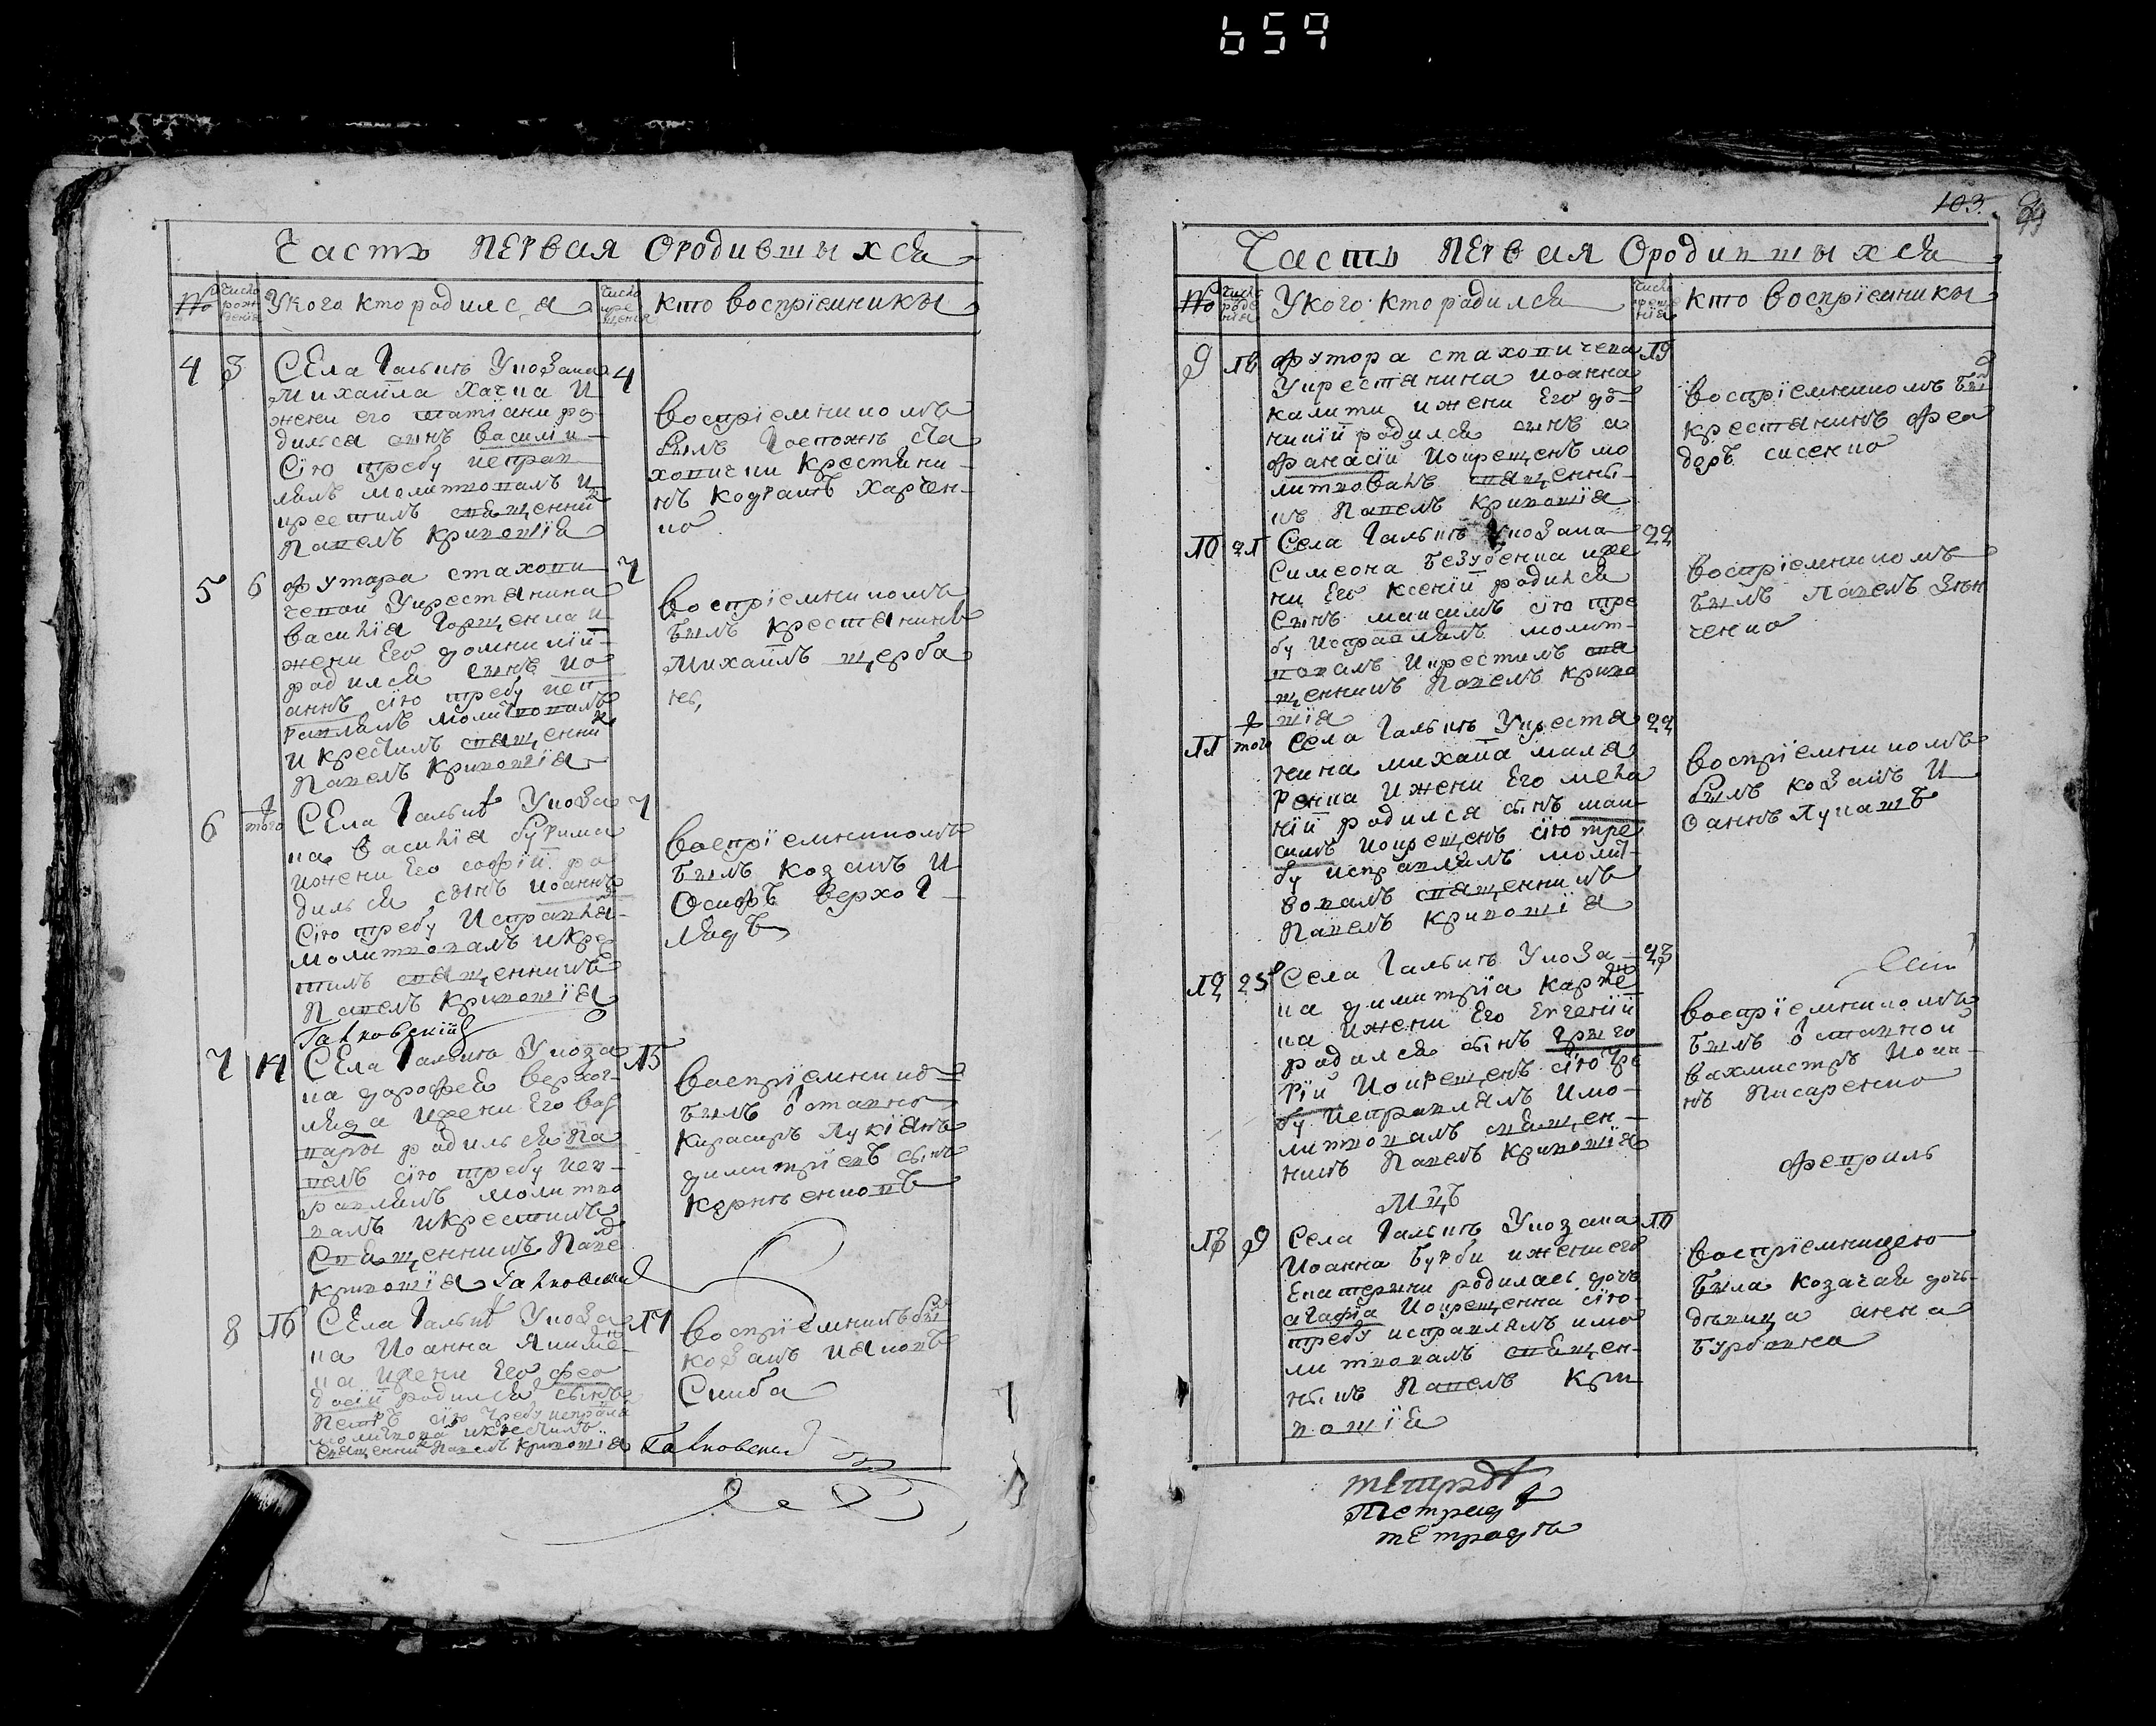 659
Часть первая о родившыхся
№ Число рождения У кого кто родился Число крещения кто восприемники
4 3 Села Гальивъ У козака 4
Михаила Хачка и
жени его Татіани ро
дилься синъ Василій
Сію требу исправ
лялъ молитвовалъ и
крестилъ священникъ
Павелъ Кривошія
воспріемникомъ
былъ Госпожи Ста
ховички крестяни-
нъ Кодратъ Харчен-
ко
5 6 Футора Стахови 7
чевой у крестянина
Василія и
жени Его Домникій
родился синъ Іо
аннъ сію требу исп
равлялъ молитвовалъ
и крестилъ священникъ
Павелъ Кривошія
воспріемникомъ
былъ крестянинъ
Михаилъ Щерба
6 того Села Гальивъ У коза 7
ка Василія Бутрима
и жени Его Софій ро
дилься сынъ Иоаннъ
Сію требу Исправля
молитвовалъ и кре
стилъ священникъ
Павелъ Кривошія
Галковскій
воспріемникомъ
былъ козакъ И
Осифъ Верхог
лядъ
7 14 Села У коза 15
ка Дорофея Верхог-
ляда и жени Его Вар
вары родилься Па
велъ сію требу исп-
равлялъ молитво
валъ и крестилъ
Священникъ Павел
Кривошія Галковскій
воспріемникъ
былъ отставно
Кирасиръ Лукіянъ
Димитріевъ синъ
Корнѣенковъ
8 16 Села У коза 17
ка Иоанна
ка и жени Его Фео
досій родился сынъ
Петръ сію требу исправля
молитвова и крестилъ
священникъ Павелъ Кривошія Галковскій
воспріемникъ бил
козакъ Иаковъ
Скиба
103.
Часть первая о родившыхся
№ Число рожденія У кого кто родился Число крещенія кто воспріемники
9 18 Футора Стаховичева 19
У крестянина Иоанна
Калити и жени Его До-
никій родился синъ А
фанасій И крещенъ мо
литвовалъ священни-
къ Павелъ Кривошія
воспріемникомъ был
крестянинъ Фео
доръ Сисенко
10 21 Села У козака 22
Симеона Безубенка и же
ни Его Ксеній родился
Сынъ Максимъ сію тре
бу Исправлялъ молит-
вовалъ И крестилъ свя
щенникъ Павелъ Криво
шія
воспріемникомъ
былъ Павелъ Зѣн
ченко
11 того Села У крестя 22
нина Михаила Мала
ренка И жени Его Мела
ній родился синъ Мак-
симъ И крещенъ сію тре
бу исправлялъ молит-
вовалъ священникъ
Павелъ Кривошія
воспріемникомъ
былъ козакъ И
оаннъ Лупашъ
12 25 Села У коза 23
ка Димитрія Карпе
ка И жени Его Евгеній
родился синъ Григо
рій И крещенъ сію тре
бу Исправлялъ И мо-
литвовалъ священ-
никъ Павелъ Кривошія
воспріемникомъ
былъ отставной
вахмистръ Иоан-
нъ Писаренко
Мцъ Февриль
13 9 Села У козака 10
Иоанна Бурби и жени его
Екатерини родилась дочь
Агафія И крещенна сію
требу исправлялъ и мо
литвовалъ священ-
никъ Павелъ Кри
вошія
воспріемницею
была козачая дочь
дѣвица Анна
Бурбовна
тетрадь
Тетрадь
тетрадь